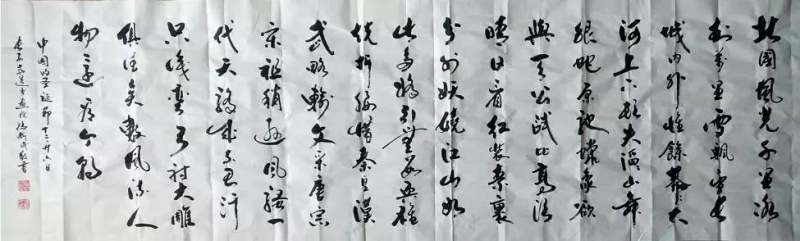 北國風光千里冰
封萬里雪飄望長
城内外惟餘莽々大
河上下頓失滔々山舞
銀蛇原馳蠟象欲
與天公試比高須
晴日看紅裝素裹
分外妖嬈江山如
此多嬌引無數英雄
競折腰惜秦皇漢
武略輸文采唐宗
宋祖稍遜風騷一
代天驕成吉思汗
只識彎弓射大雕
俱往矣數風流人
物還看今朝
中国的圣诞節十二廿六日